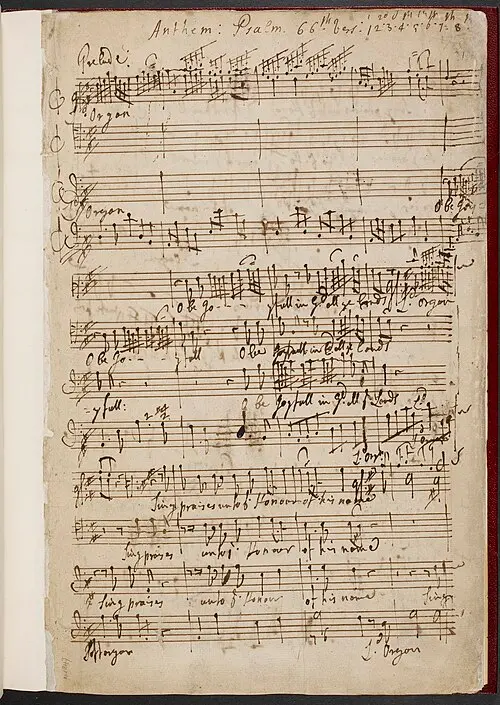 Anthem: Psalm. 66th ver: 1 2 3 4 5 6 7 8
Prelude:
Organ
Organ
O be Jo
O be Jo - - yfull in God all ye Lands Organ
O be Jo - - yfull O be Joyfull in God all ye Lands
- yfull: O be Joyfull in God all ye Lands
Sing praises unto ye Honour of his name
Sing praises unto ye Honour of his name
Sing praises unto ye Honour of his name Sing
Organ Organ